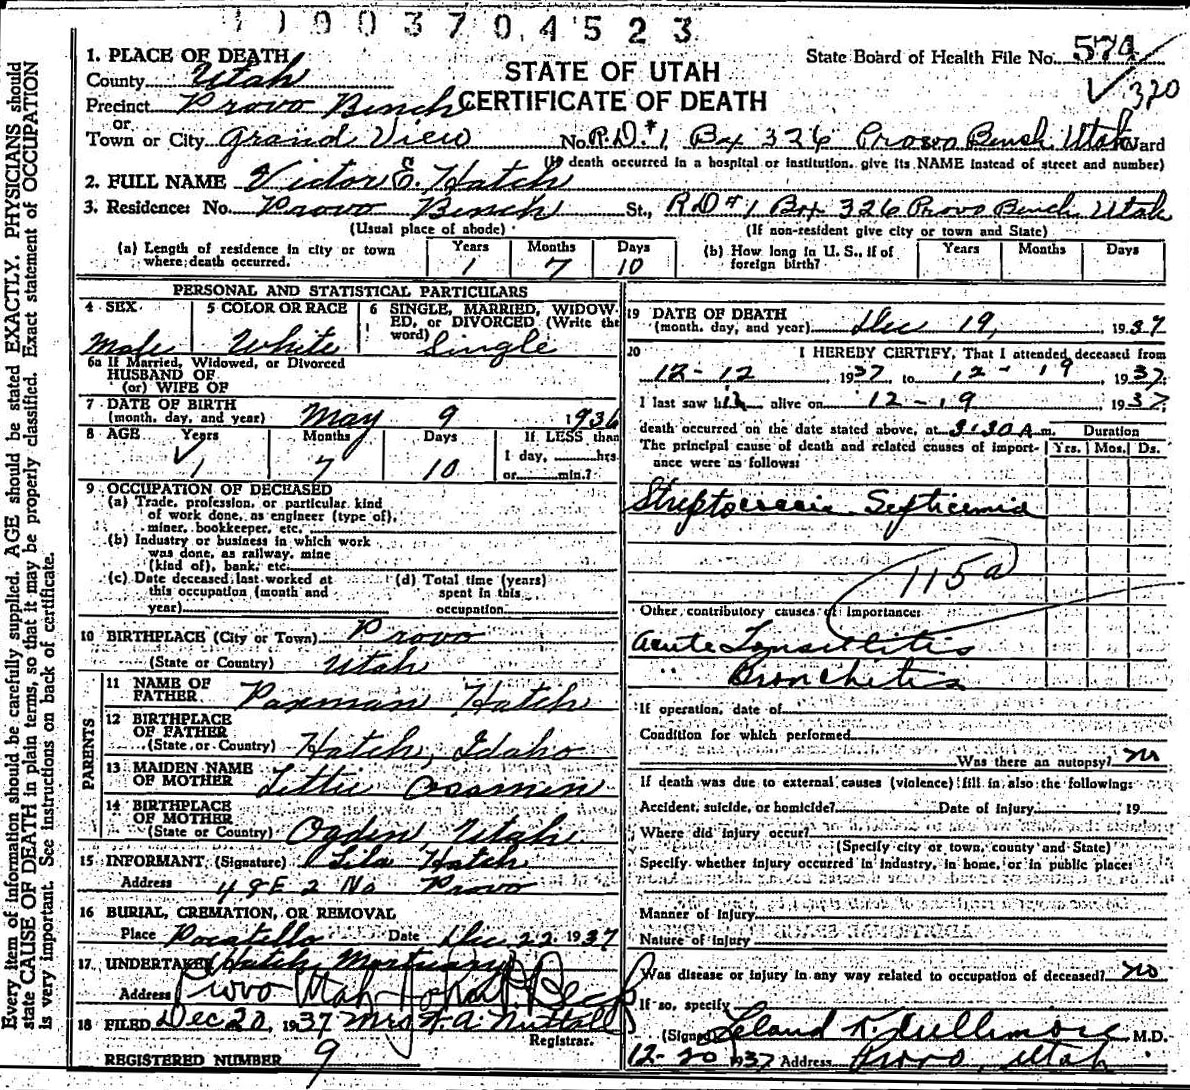 1903704523
1. PLACE OF DEATH
State Board of Health File No. 574
County Utah
STATE OF UTAH
320
Precinct Provo Bench
CERTIFICATE OF DEATH
or
Town or City Grand View No. R.D.#1 Bx 326 Provo Bench, Utah Ward
(If death occurred in a hospital or institution, give its NAME instead of street and number)
2. FULL NAME Victor E. Hatch
3. Residence: No. Provo Bench St., RD #1 Bx 326 Provo Bench, Utah
(Usual place of abode) (If non-resident give city or town and State)
(a) Length of residence in city or town where death occurred. Years 1 Months 7 Days 10
(b) How long in U. S., if of foreign birth? Years Months Days
PERSONAL AND STATISTICAL PARTICULARS
4 SEX Male
5 COLOR OR RACE White
6 SINGLE, MARRIED, WIDOWED, or DIVORCED (Write the word) Single
6a If Married, Widowed, or Divorced
HUSBAND OF
(or) WIFE OF
7 DATE OF BIRTH
(month, day, and year) May 9 1936
8 AGE Years 1 Months 7 Days 10 If LESS than
1 day, hrs.
or min.?
9 OCCUPATION OF DECEASED
(a) Trade, profession, or particular kind
of work done, as engineer (type of),
miner, bookkeeper, etc.
(b) Industry or business in which work
was done, as railway, mine
(kind of), bank, etc.
(c) Date deceased last worked at
this occupation (month and
year)
(d) Total time (years)
spent in this
occupation
10 BIRTHPLACE (City or Town) Provo
(State or Country) Utah
PARENTS
11 NAME OF
FATHER Paxman Hatch
12 BIRTHPLACE
OF FATHER
(State or Country) Hatch, Idaho
13 MAIDEN NAME
OF MOTHER Lettie
14 BIRTHPLACE
OF MOTHER
(State or Country) Ogden Utah
15 INFORMANT (Signature) Lila Hatch
Address 48 E 2 No Provo
16 BURIAL, CREMATION, OR REMOVAL
Place Pocatello Date Dec 22 1937
17 UNDERTAKER Hatch Mortuary
Address Provo Utah
18 FILED Dec 20, 1937 Mrs. F. A. Nuttall
Registrar.
REGISTERED NUMBER 9
19 DATE OF DEATH
(month, day, and year) Dec 19, 1937
20 I HEREBY CERTIFY, That I attended deceased from
12-12, 1937 to 12-19 1937
I last saw him alive on 12-19 1937
death occurred on the date stated above, at 3:30 A m. Duration
The principal cause of death and related causes of importance were as follows: Yrs. Mos. Ds.
Streptococcic Septicemia
115a
Other contributory causes of importance:
Acute Tonsillitis
" Bronchitis
If operation, date of
Condition for which performed
Was there an autopsy? no
If death was due to external causes (violence) fill in also the following:
Accident, suicide, or homicide? Date of injury 19
Where did injury occur?
(Specify city or town, county and State)
Specify whether injury occurred in industry, in home, or in public place:
Manner of injury
Nature of injury
Was disease or injury in any way related to occupation of deceased? no
If so, specify
(Signed) Leland K. Cullimore M.D.
12-20 1937 Address Provo, Utah
Every item of information should be carefully supplied. AGE should be stated EXACTLY. PHYSICIANS should
state CAUSE OF DEATH in plain terms, so that it may be properly classified. Exact statement of OCCUPATION
is very important. See instructions on back of certificate.